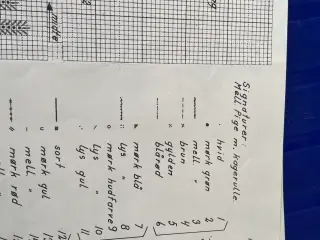 midte
Signaturer:
Mell. Pige m. kagerulle.
hvid 1
mørk grøn 2
mell. " 3
brun 4
gylden 5
blårød 6
mørk blå 7
lys " 8
mørk hudfarve 9
lys " 10
lys gul 11
sort 12
mørk gul
mell. "
mørk rød